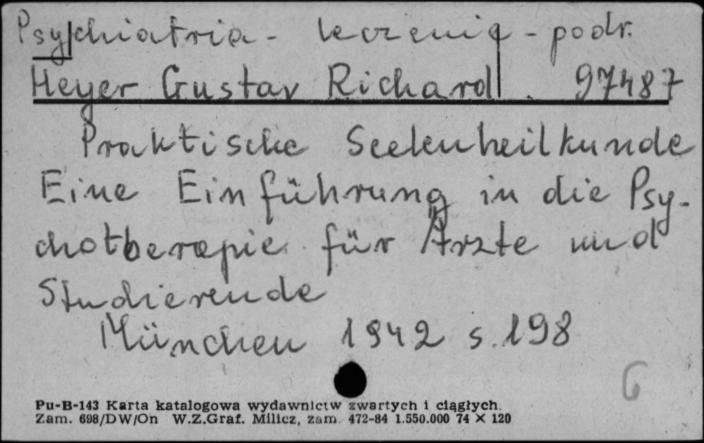 Psychiatria - leczenie - podr.
Heyer Gustav Richard 97487
Praktische Seelenheilkunde
Eine Einführung in die Psy-
chotherapie für Ärzte und
Studierende
München 1942 s. 198
6
Pu-B-143 Karta katalogowa wydawnictw zwartych i ciągłych.
Zam. 698/DW/On W.Z.Graf. Milicz, zam. 472-84 1.550.000 74 × 120